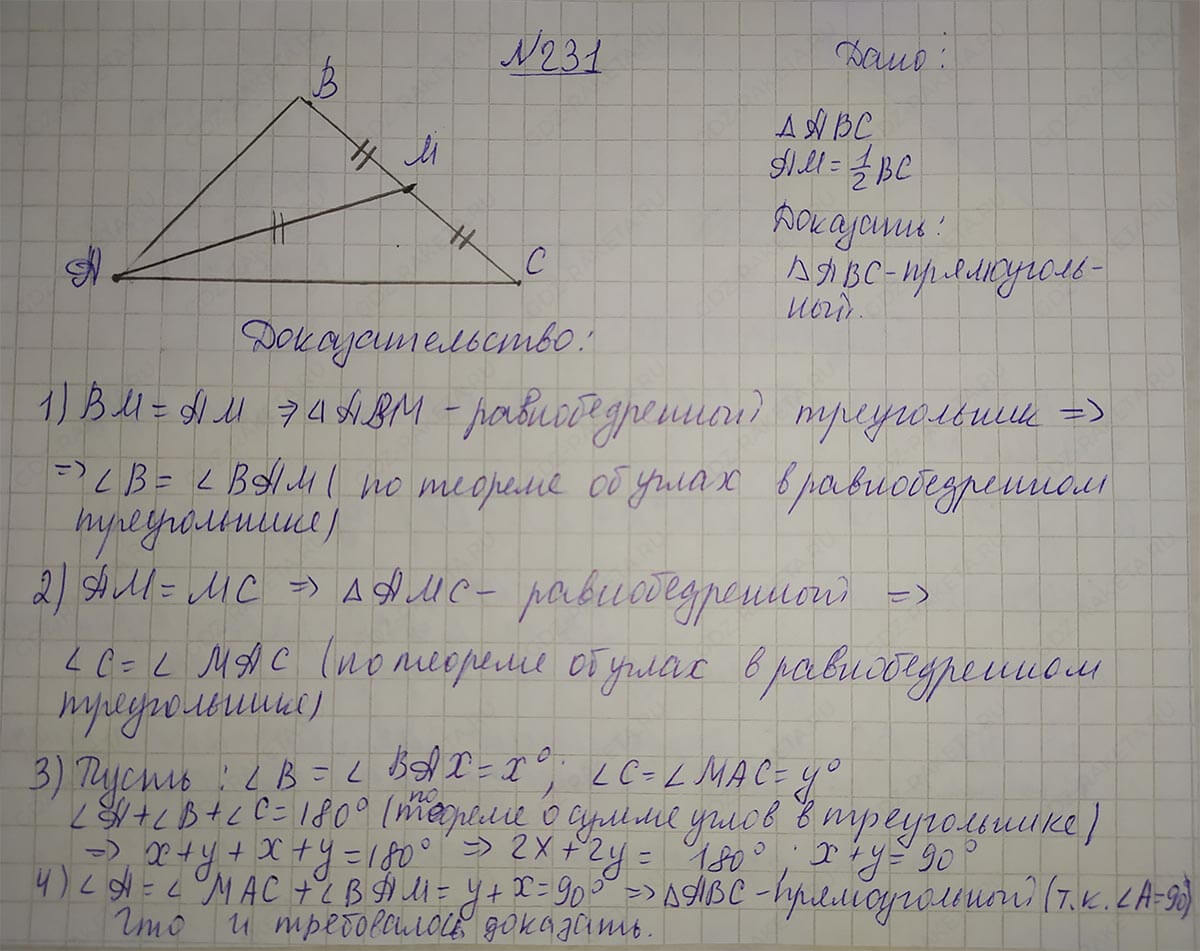 №231
Дано:
B
M
A
C
△ABC
AM = 1/2 BC
Доказать:
△ABC - прямоуголь-
ный.
Доказательство:
1) BM = AM ⇒ △ABM - равнобедренный треугольник ⇒
⇒ ∠B = ∠BAM ( по теореме об углах в равнобедренном
треугольнике)
2) AM = MC ⇒ △AMC - равнобедренный ⇒
∠C = ∠MAC (по теореме об углах в равнобедренном
треугольнике)
3) Пусть: ∠B = ∠BAX = x°; ∠C = ∠MAC = y°
∠A + ∠B + ∠C = 180° (по теореме о сумме углов в треугольнике)
⇒ x + y + x + y = 180° ⇒ 2x + 2y = 180°; x + y = 90°
4) ∠A = ∠MAC + ∠BAM = y + x = 90° ⇒ △ABC - прямоугольный (т.к. ∠A = 90)
Что и требовалось доказать.